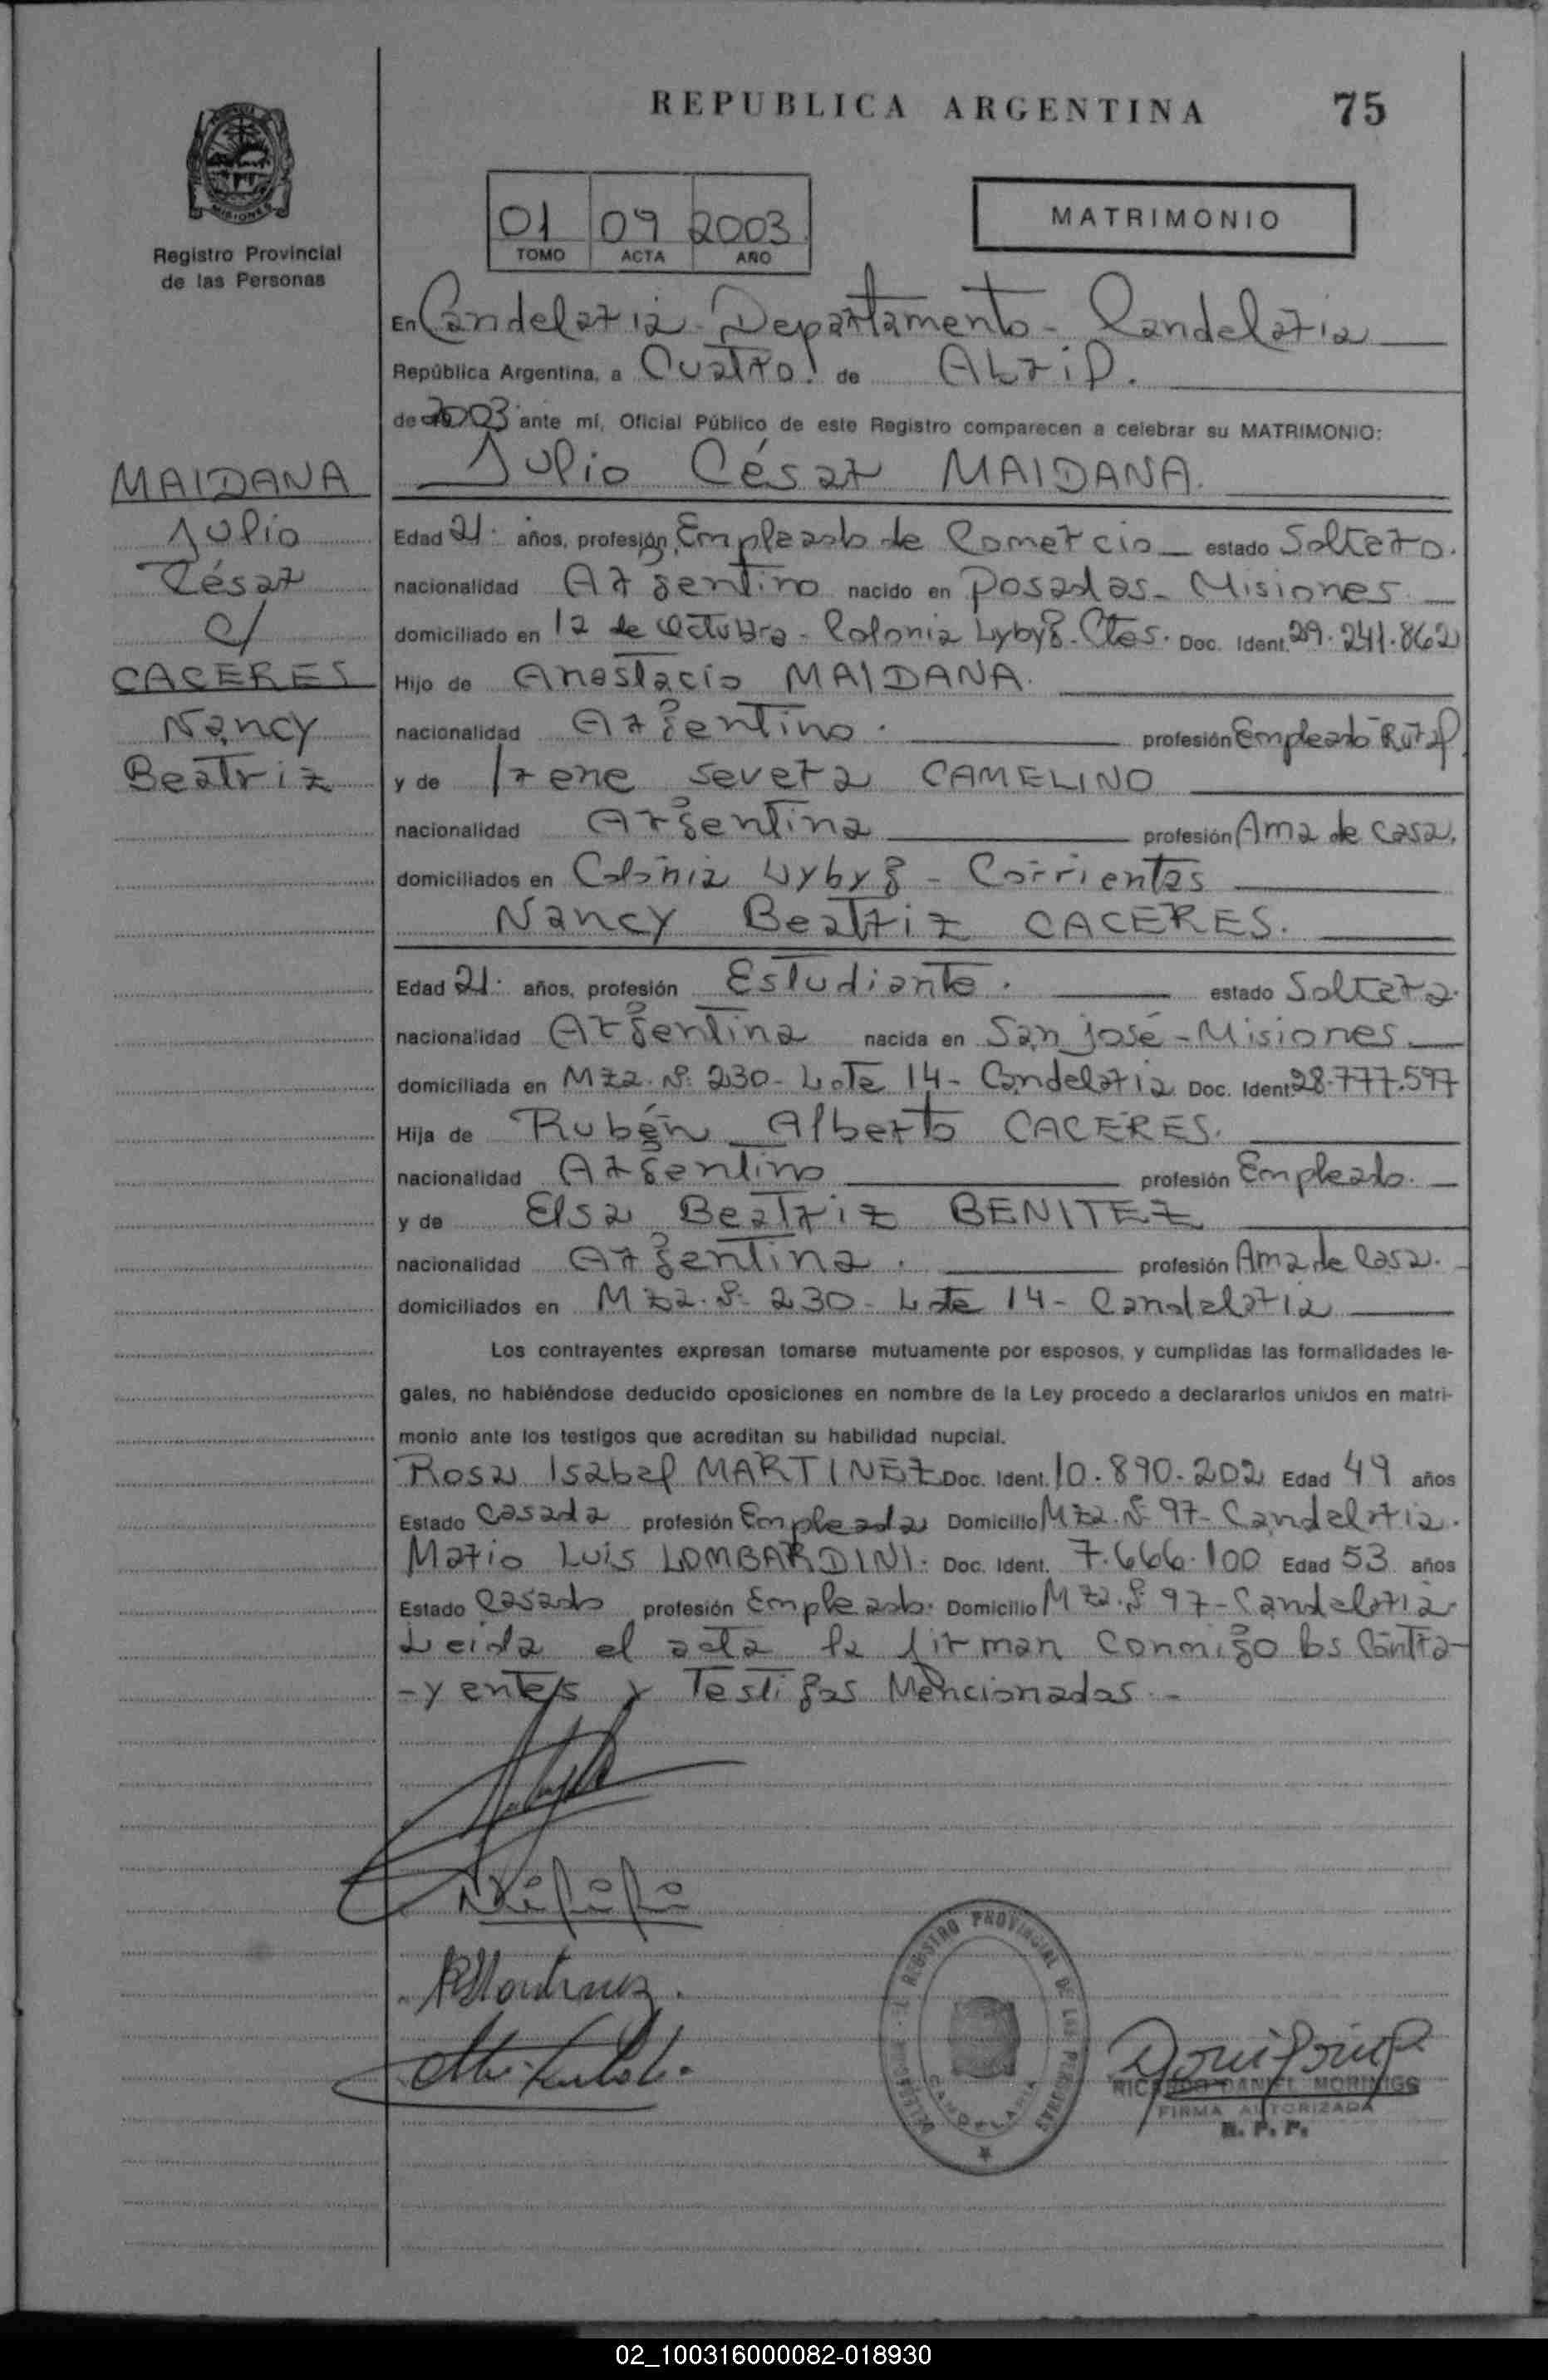 REPUBLICA ARGENTINA 75
MISIONES
Registro Provincial
de las Personas
01 09 2003
TOMO ACTA AÑO
MATRIMONIO
En Candelaria - Departamento - Candelaria
República Argentina, a Cuatro. de Abril.
de 2003 ante mí, Oficial Público de este Registro comparecen a celebrar su MATRIMONIO:
Julio César MAIDANA.
MAIDANA
Julio
César
c/
CACERES
Nancy
Beatriz
Edad 21. años, profesión Empleado de Comercio estado Soltero.
nacionalidad Argentino nacido en Posadas - Misiones.
domiciliado en 12 de Octubre - Colonia Lybyg - Ctes. Doc. Ident. 29.241.862
Hijo de Anastacio MAIDANA.
nacionalidad Argentino. profesión Empleado Rural
y de Irene Severa CAMELINO
nacionalidad Argentina profesión Ama de Casa.
domiciliados en Colonia Lybyg - Corrientes
Nancy Beatriz CACERES.
Edad 21. años, profesión Estudiante. estado Soltera.
nacionalidad Argentina nacida en San José - Misiones
domiciliada en Mza. Nº 230 - Lote 14 - Candelaria Doc. Ident. 28.777.597
Hija de Rubén Alberto CACERES.
nacionalidad Argentino profesión Empleado.
y de Elsa Beatriz BENITEZ
nacionalidad Argentina. profesión Ama de Casa.
domiciliados en Mza. Nº 230 - Lote 14 - Candelaria
Los contrayentes expresan tomarse mutuamente por esposos, y cumplidas las formalidades le-
gales, no habiéndose deducido oposiciones en nombre de la Ley procedo a declararlos unidos en matri-
monio ante los testigos que acreditan su habilidad nupcial.
Rosa Isabel MARTINEZ Doc. Ident. 10.890.202 Edad 49 años
Estado Casada profesión Empleada Domicilio Mza. Nº 97 - Candelaria.
Mario Luis LOMBARDINI. Doc. Ident. 7.666.100 Edad 53 años
Estado Casado profesión Empleado. Domicilio Mza. Nº 97 - Candelaria.
Leida el acta la firman conmigo los Contra-
-yentes y Testigos Mencionados.-
RMartinez.
REGISTRO PROVINCIAL DE LAS PERSONAS
CANDELARIA
RICARDO DANIEL MORINIGO
FIRMA AUTORIZADA
R. P. P.
02_100316000082-018930